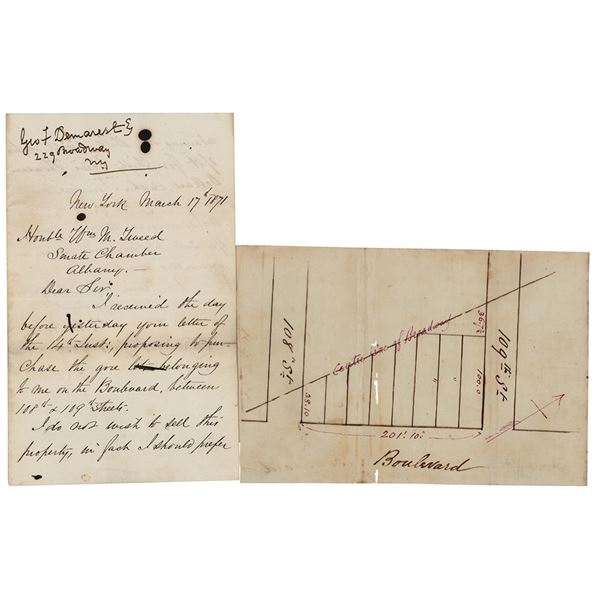 Geo F Demarest Eq
229 Broadway
NY
New York March 17th 1871
Honble Wm M. Tweed
Senate Chamber
Albany.—
Dear Sir,
I received the day
before yesterday your letter of
the 14th Inst; proposing to pur-
chase the gore belonging
to me on the Boulevard, between
108th & 109th Streets.
I do not wish to sell this
property, in fact I should prefer
108th St
Centre line of Broadway
109th St
100.0
201.10
Boulevard